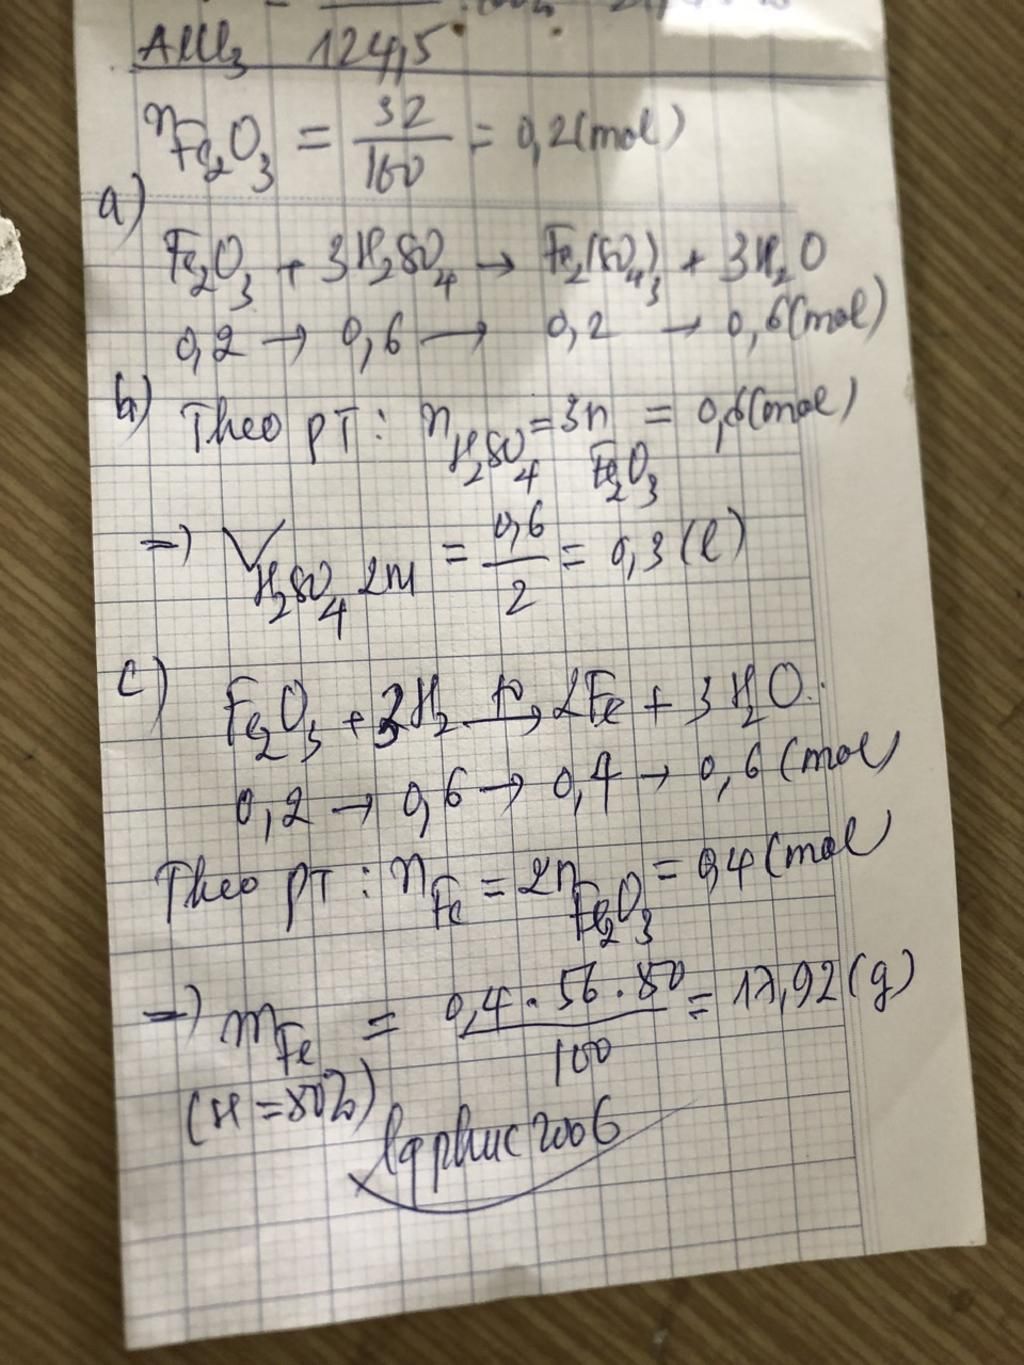 AlCl3 124,5
nFe2O3 = 32/160 = 0,2(mol)
a)
Fe2O3 + 3H2SO4 → Fe2(SO4)3 + 3H2O
0,2 → 0,6 → 0,2 → 0,6(mol)
b) Theo PT: nH2SO4 = 3nFe2O3 = 0,6(mol)
=) VH2SO4 2M = 0,6/2 = 0,3(l)
c) Fe2O3 + 3H2 –t°→ 2Fe + 3H2O.
0,2 → 0,6 → 0,4 → 0,6(mol)
Theo PT: nFe = 2nFe2O3 = 0,4(mol
=) mFe = 0,4.56.80/100 = 17,92(g)
(H=80%)
lqphuc2006